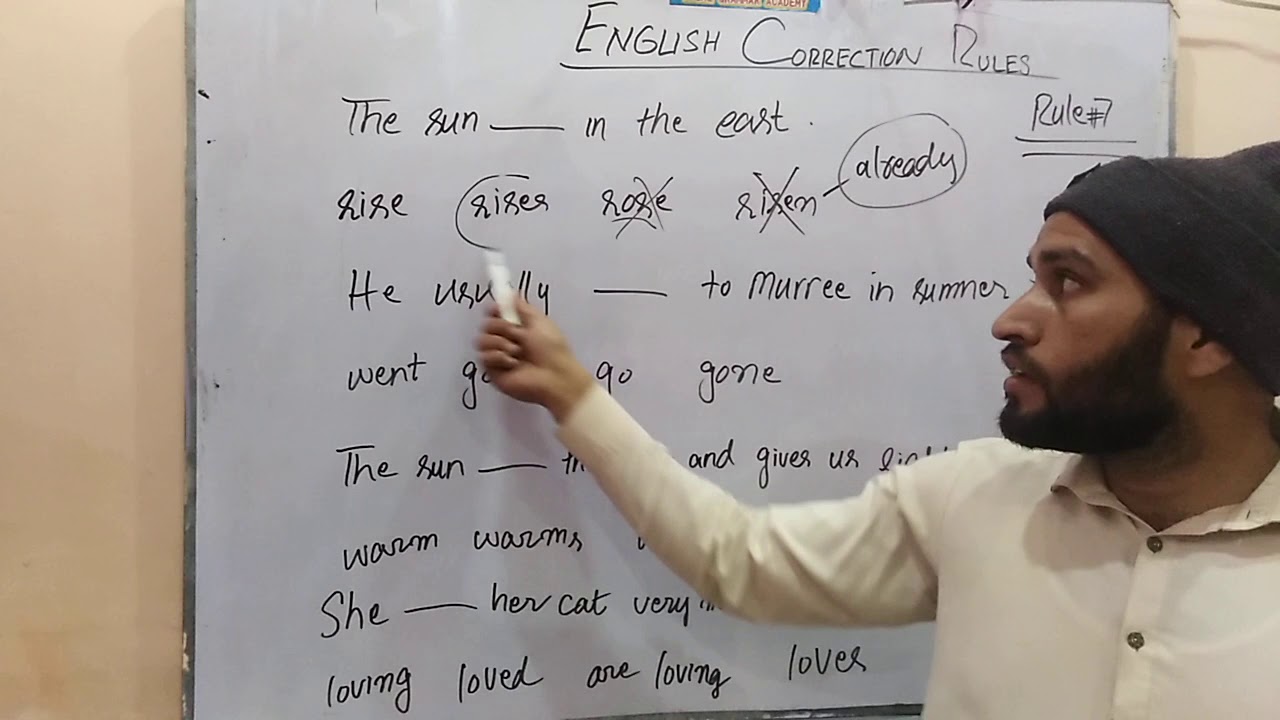 GRAMMAR ACADEMY
ENGLISH CORRECTION RULES
Rule#7
The sun ___ in the east.
rise rises rose risen already
He usually ___ to Murree in summer
went go gone
The sun ___ and gives us
warm warms
She ___ her cat very
loving loved are loving loves